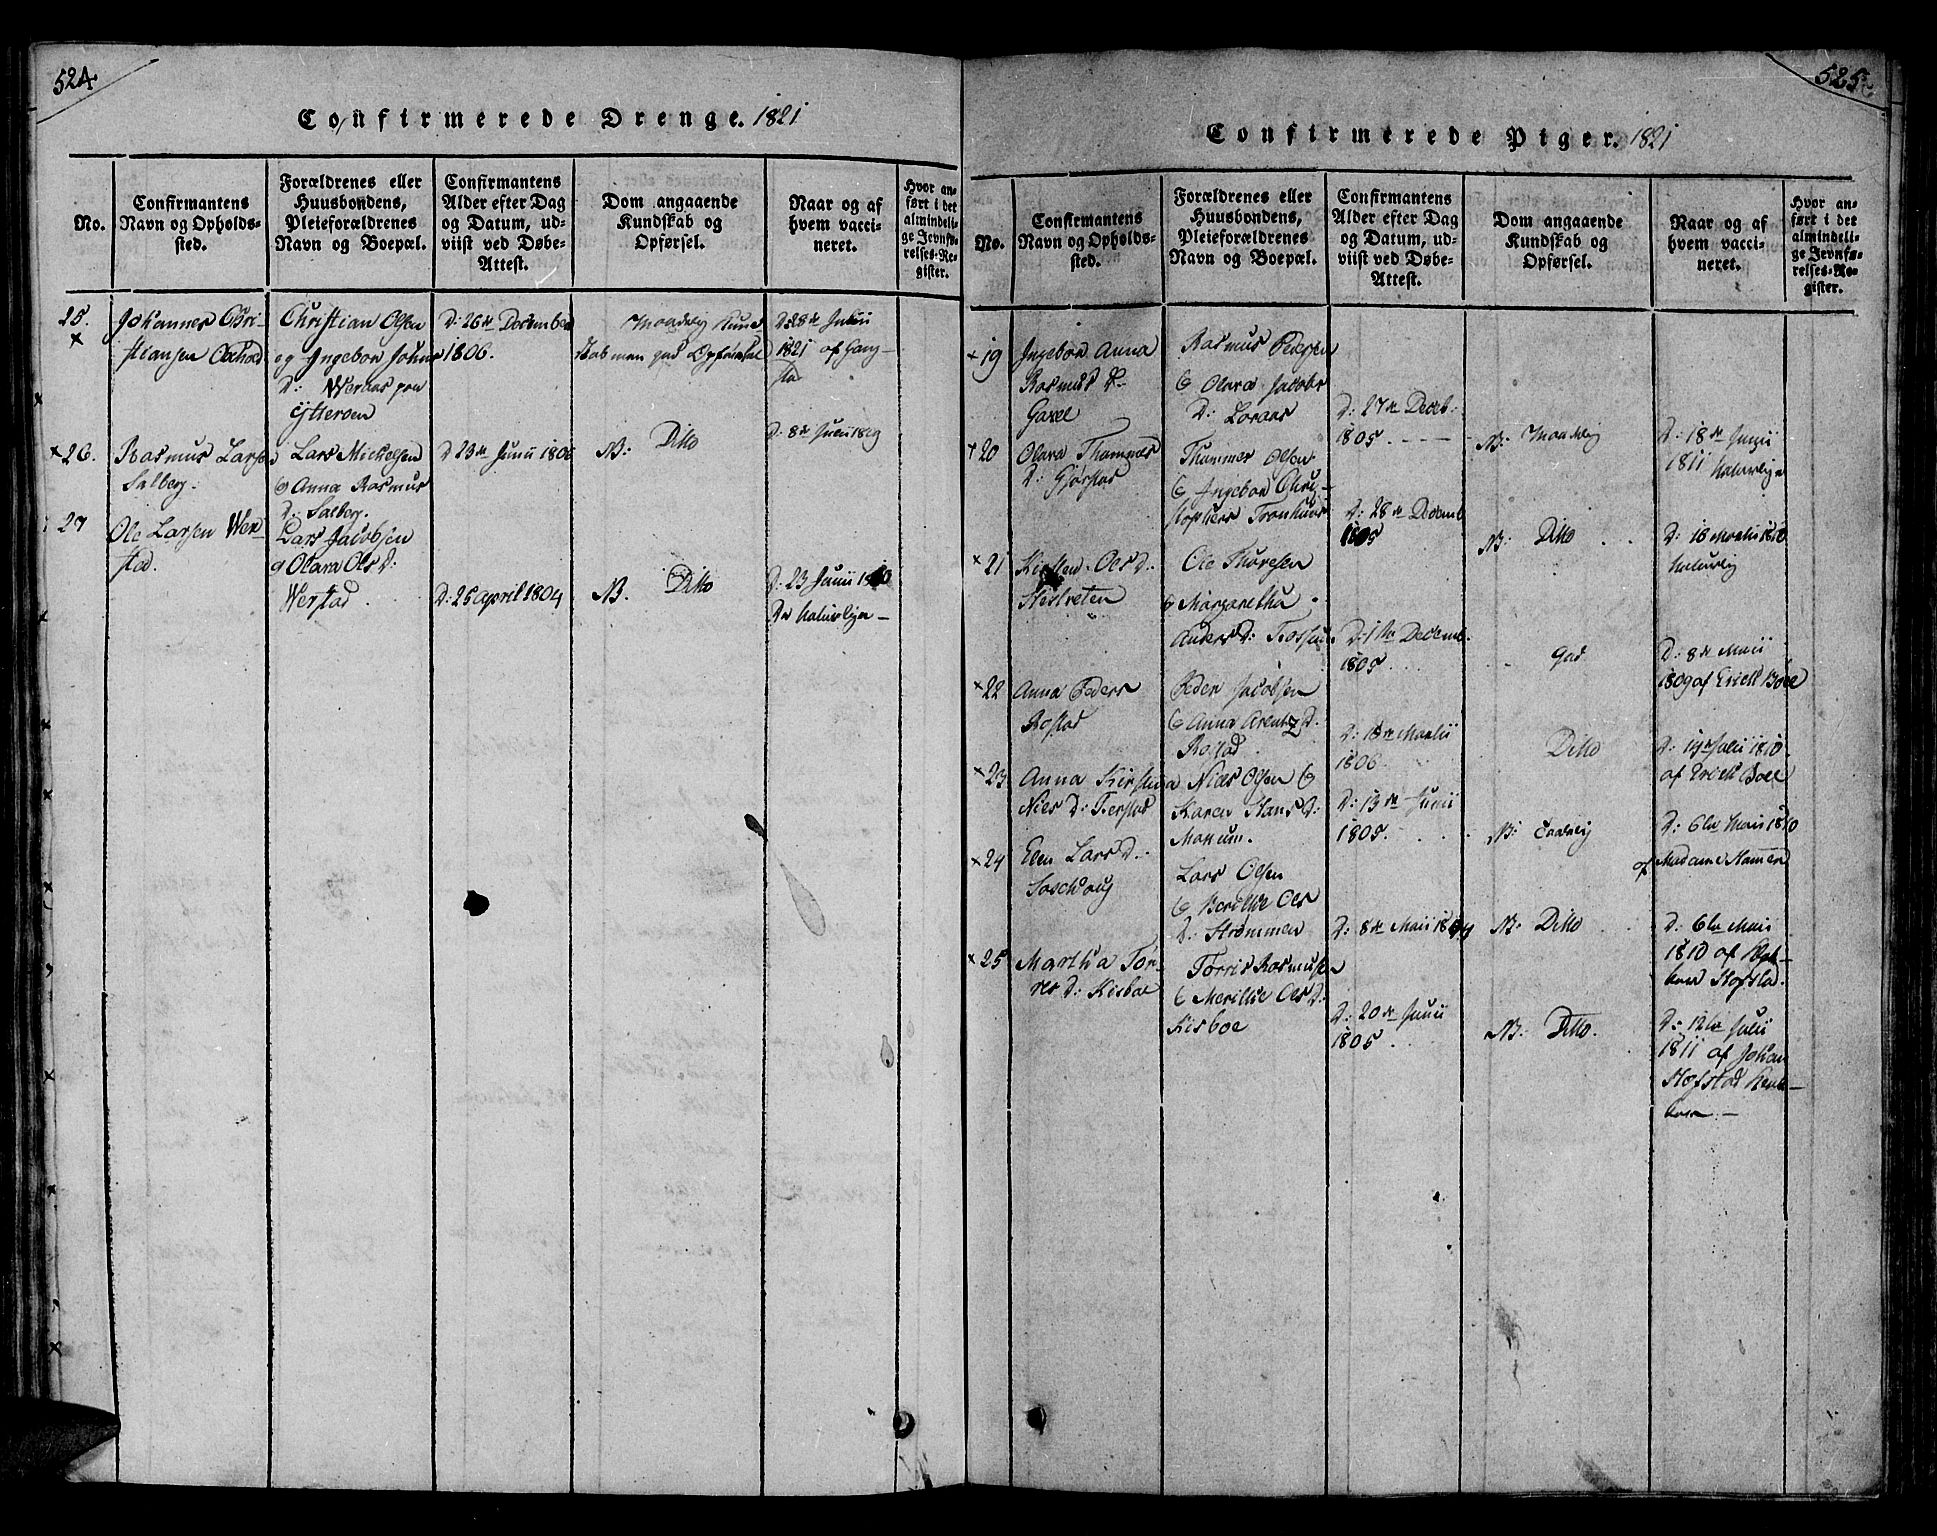 524
Confirmerede Drenge. 1821
No.
Confirmantens
Navn og Opholds-
sted.
Forældrenes eller
Huusbondens,
Pleieforældrenes
Navn og Boepæl.
Confirmantens
Alder efter Dag
og Datum, ud-
viist ved Døbe-
Attest.
Dom angaaende
Kundskab og
Opførsel.
Naar og af
hvem vacci-
neret.
Hvor an-
ført i det
almindeli-
ge Jevnfø-
relses-Re-
gister.
25.
×
Johannes Chri-
stiansen
Christian Olsen
og Ingebor Johns
D: Wernes paa
Ytterøen
D: 26de December
1806.
Maadelig Kund-
skab men god Opførsel
D: 28de Julii
1821 af Gang-
stad
×26.
Rasmus Larsen
Salberg.
Lars Michelsen
& Anna Rasmus
D: Salberg.
D 23de Junii 1806
N: Ditto
D: 8de Julii 1819
27
Ole Larsen Wer-
stad.
Lars Jacobsen
& Olara Ols D:
Werstad
D: 25 April 1804
N. Ditto
D: 23 Junii
De naturlige –
525
Confirmerede Piger. 1821
No.
Confirmantens
Navn og Opholds-
sted.
Forældrenes eller
Huusbondens,
Pleieforældrenes
Navn og Boepæl.
Confirmantens
Alder efter Dag
og Datum, ud-
viist ved Døbe-
Attest.
Dom angaaende
Kundskab og
Opførsel.
Naar og af
hvem vacci-
neret.
Hvor an-
ført i det
almindeli-
ge Jevnfø-
relses-Re-
gister.
×19
Ingebor Anna
Rasmus D:
Gaxel
Rasmus Pedersen
& Olara Jacobs
D: Loraas
D: 27de Deceb:
1805.
N: Maadelig
D: 18de Junii
1811
Naturlige
×20
Olara Thommes
D: Gjørstad
Thommes Olsen
& Ingebor Chri-
stophers Tronhuus
D: 28de Decemb
1805
N: Ditto
D: 16 Martii 1810
Naturlig
×21
Kirsten Ols D:
Hestveten
Ole Thoresen
& Margaretha
Anders D:
D: 1de Decemb.
1805
God
D: 8de Maii
1809 af Erich Boel
×22
Anna Peders
Rostad
Peder Jacobsen
& Anna Arentz D.
Rostad
D: 18de Martii
1806
Ditto
D: 14de Julii 1810
af Erich Boel
×23
Anna Kirstina
Niels D: Tierstad
Niels Olsen &
Karen Hans D:
Makum.
D: 13de Junii
1805.
N: Taalelig
D: 6te Maii 1810
af Madame Hammer
×24
Elen Lars D:
Saxhaug
Lars Olsen
& Berithe Ols
D: Strømmen
D: 8de Maii 1804
N: Ditto
D: 6te Maii
1810 af
Hofstad.
×25
Martha Tor-
res D: Kisboe
Torris Rasmusen
& Merithe Ols D:
Kisboe
D: 20de Junii
1805
N: Ditto.
D: 12te Julii
1811 af Johan
Hofstad